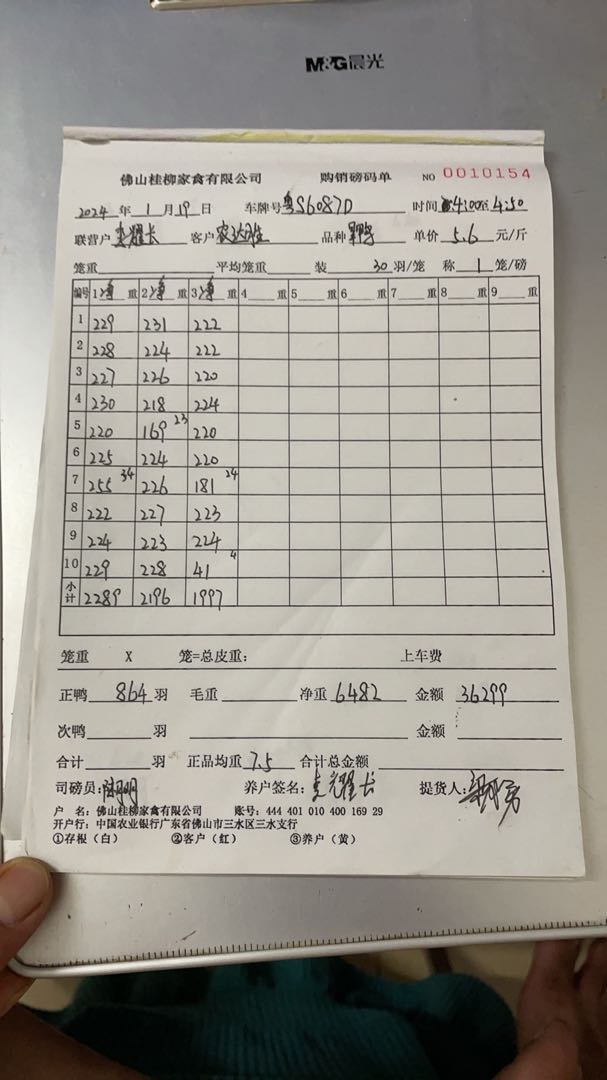 M&G晨光
佛山桂柳家禽有限公司 购销磅码单 NO 0010154
2024 年 1 月 19 日 车牌号 粤S6087D 时间 4:00至4:50
联营户 耀长 客户 农达 品种 单价 5.6 元/斤
笼重 平均笼重 装 30 羽/笼 称 1 笼/磅
编号 1 净 重 2 净 重 3 净 重 4 重 5 重 6 重 7 重 8 重 9 重
1 229 231 222
2 228 224 222
3 227 226 220
4 230 218 224
5 220 169 23 220
6 225 224 220
7 255 34 226 181 24
8 222 227 223
9 224 223 224
10 229 228 41 4
小计 2289 2196 1997
笼重 X 笼=总皮重: 上车费
正鸭 864 羽 毛重 净重 6482 金额 36299
次鸭 羽 金额
合计 羽 正品均重 7.5 合计总金额
司磅员: 养户签名: 耀长 提货人:
户 名: 佛山桂柳家禽有限公司 账号: 444 401 010 400 169 29
开户行: 中国农业银行广东省佛山市三水区三水支行
①存根(白) ②客户(红) ③养户(黄)